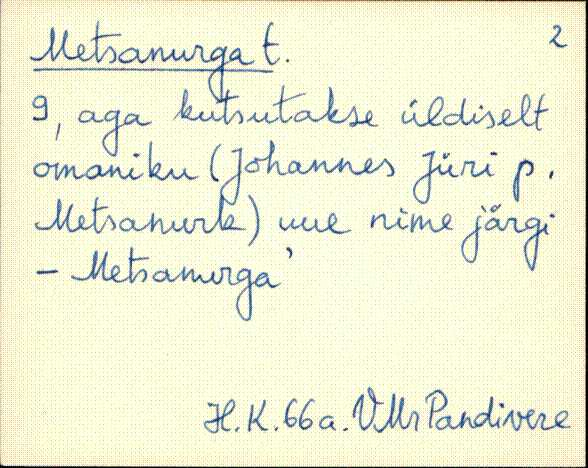 Metsanurga t. 2
9, aga kutsutakse üldiselt
omaniku (Johannes Jüri p.
Metsanurk) uue nime järgi
– Metsanurga'
H.K. 66a. VMr Pandivere